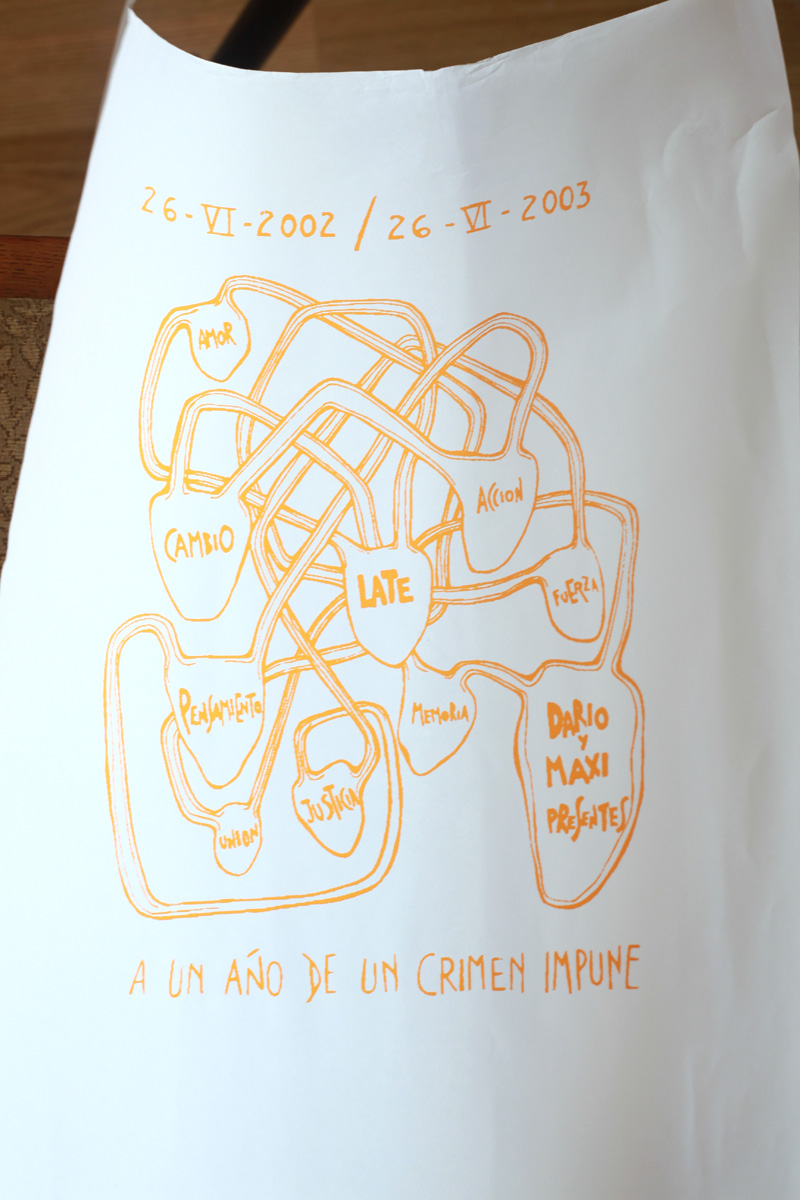 26-VI-2002 / 26-VI-2003
AMOR
ACCION
CAMBIO
LATE
FUERZA
PENSAMIENTO
MEMORIA
DARIO
Y
MAXI
PRESENTES
JUSTICIA
UNION
A UN AÑO DE UN CRIMEN IMPUNE